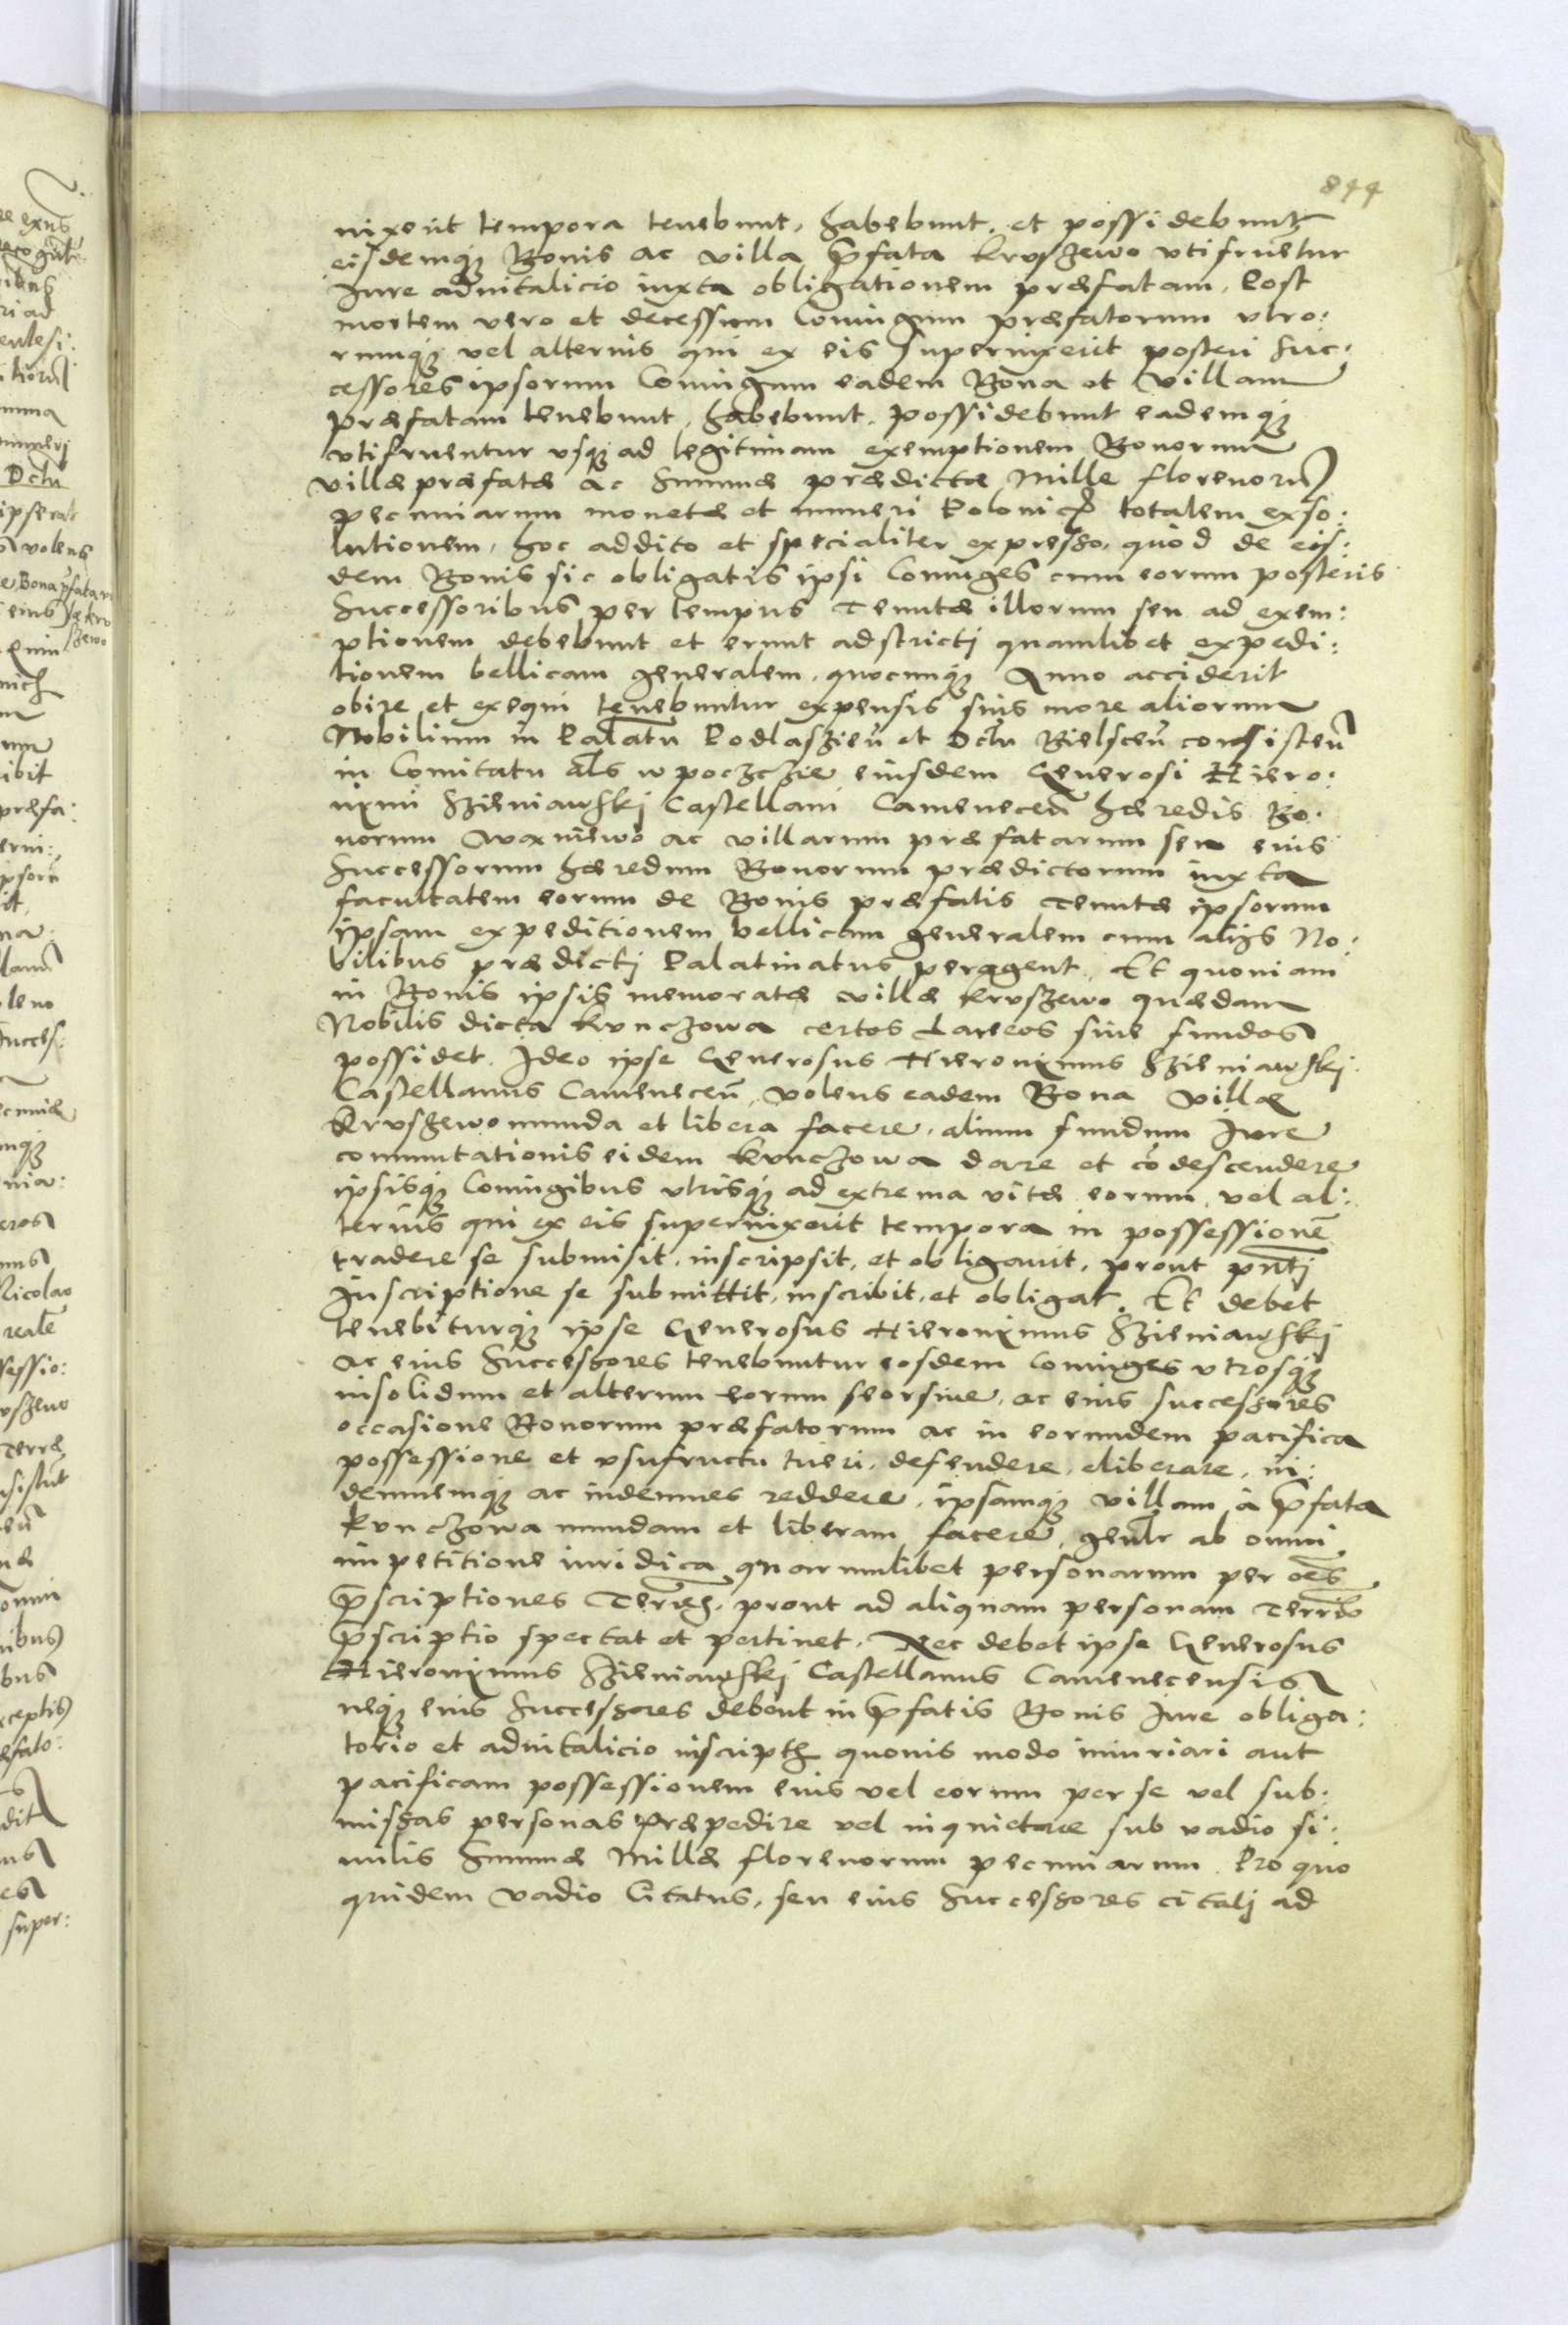 844
uixerit tempora tenebunt, habebunt, et possidebunt
eisdemq3 Bonis ac villa p̄fata Krvszewo vtifruẽtur
Jure aduitalicio iuxta obligationem præfatam, Post
mortem vero et decessum Coniugum præfatorum vtro:
rumq3 vel alterius qui ex eis superuixerit posteri suc:
cessores ipsorum Coniugum eadem Bona et villam
præfatam tenebunt, habebunt, possidebunt eademq3
vtifruentur vsq3 ad legitimam exemptionem Bonorum
villæ præfatæ ac Summæ prædictæ Mille florenorū
pecuniarum monetæ et numeri Polonic. totalem exso:
lutionem, hoc addito et specialiter expresso, quod de eis:
dem Bonis sic obligatis ipsi Coniuges cum eorum posteris
Successoribus per tempus Tenutæ illorum seu ad exem:
ptionem debebunt et erunt adstricti quamlibet expedi:
tionem bellicam generalem, quocunq3 Anno acciderit
obire et exequi tenebuntur expensis suis more aliorum
Nobilium in Palatu Podlaszień et Dctu Bielsceń consisteń
in Comitatu als w poczczie eiusdem Generosi Hiero:
nimi Szieniawskj Castellani Cameneceń hæredis Bo:
norum Waniewo ac villarum præfatarum seu eius
Successorum hæredum Bonorum prædictorum iuxta
facultatem eorum de Bonis præfatis Tenutæ ipsorum
ipsam expeditionem bellicam generalem cum alijs No:
bilibus prædicti Palatinatus peragent, Et quoniam
in Bonis ipsis memoratæ villæ Krvszewo quædam
Nobilis dicta Kvnczowa certos Laneos siue fundos
possidet. Ideo ipse Generosus Hieronimus Szieniawskj
Castellanus Cameneceń, volens eadem Bona villæ
Krvszewo munda et libera facere, alium fundum Jure
commutationis eidem Kvnczowa dare et cōdescendere
ipsisq3 Coniugibus vtrisq3 ad extrema vitæ eorum, vel al:
terius qui ex eis superuixerit tempora in possessionē
tradere se submisit, inscripsit, et obligauit, prout pn̄ti
Inscriptione se submittit, inscribit, et obligat. Et debet
tenebiturq3 ipse Generosus Hieronimus Szieniawskj
ac eius Successores tenebuntur eosdem Coniuges vtrosq3
insolidum et alterum eorum seorsiue, ac eius successores
occasione Bonorum præfatorum ac in eorundem pacifica
possessione et vsufructu tueri, defendere, eliberare, in:
demnemq3 ac indemnes reddere, ipsamq3 villam à p̄fata
Kvnczowa mundam et liberam facere, genlr ab omni
impetitione iuridica quarumlibet personarum per oēs
p̄scriptiones Terres, prout ad aliquam personam Terris
p̄scriptio spectat et pertinet, Nec debet ipse Generosus
Hieronimus Szieniawskj Castellanus Camenecensis
neq3 eius Successores debent in p̄fatis Bonis Jure obliga:
torio et aduitalicio inscript. quouis modo iniuriari aut
pacificam possessionem eius vel eorum per se vel sub:
missas personas præpedire vel inquietare sub vadio si:
milis Summæ Millæ florenorum pecuniarum. Pro quo
quidem vadio Citatus, seu eius Successores citati ad